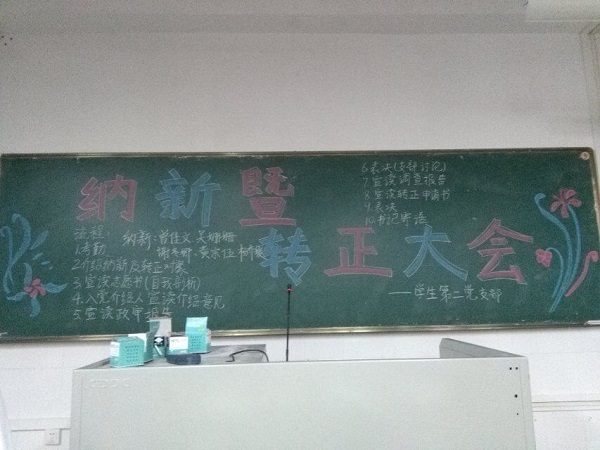 纳新暨
转正大会
流程:
纳新:曾佳文 吴姗姗
1.考勤
2.介绍纳新及转正对象
3.宣读志愿书(自我剖析)
4.入党介绍人宣读介绍意见
5.宣读政审报告
6.表决(支部讨论)
7.宣读调查报告
8.宣读转正申请书
9.表决
10.书记寄语
——学生第二党支部